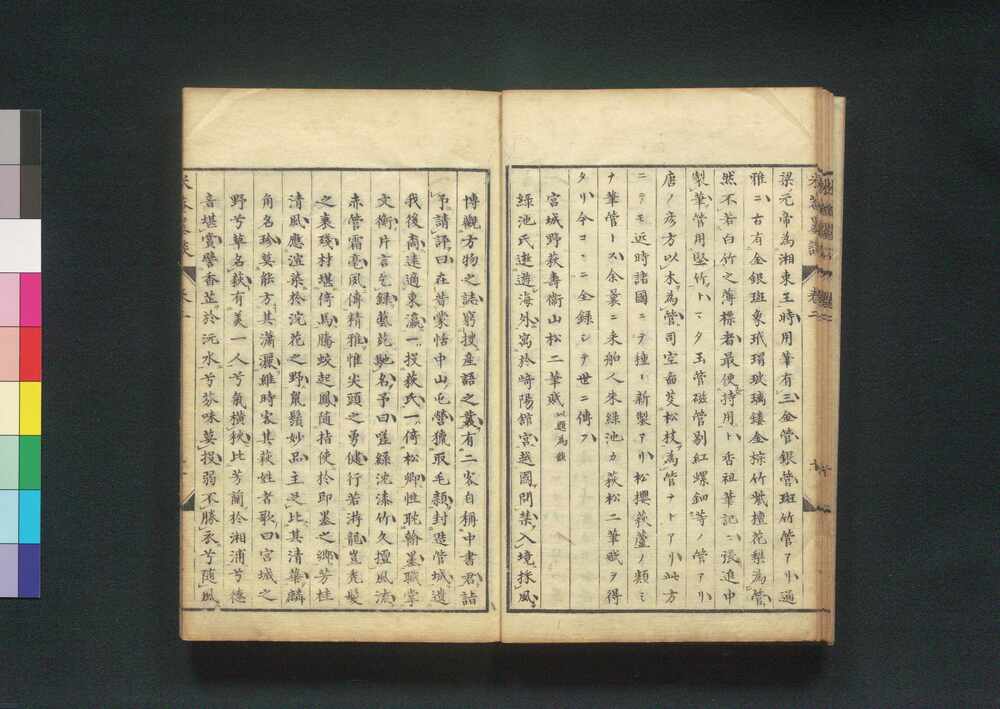 梁元帝為湘東王時用筆有三金管銀管斑竹管アリ通
雅ニ古有金銀斑象玳瑁玻璃鏤金棕竹紫檀花梨為管
然不若白竹之薄標者最便持用ト香祖筆記ニ張進中
製筆管用堅竹トマタ玉管磁管剔紅螺鈿等ノ管アリ
唐ノ房方以木為管司空圖芟松枝為管ナドアリ此方
ニテモ近時諸國ニテ種々新製アリ松櫻萩蘆ノ類ミ
ナ筆管トス余曩ニ来舶人朱綠池カ萩松二筆贓ヲ得
タリ今コヽニ全録シテ世ニ傳フ
宮城野萩壽衛山松二筆贓
綠池氏遊遊海外寓於崎陽舘宮越國問禁入境採風
博觀方物之誌窮搜産語之叢有二客自稱中書君詣
予請譯曰在昔蒙恬中山屯營獵取毛穎封造管城遺
我後裔遠適東瀛一投萩氏一倚松卿性耽翰墨職掌
文衡片言乞録藝苑馳名予曰嗟綠沈漆竹久擅風流
赤管霜毫風傳精雅惟尖頭之勇健行若游龍豈禿髮
之衰殘材堪倚馬騰蛟起鳳随拮使於即墨之鄉芳桂
清風應渲染於浣花之野鼠鬚妙品主乏比其清華麟
角名珍莫能方其潇灑維時客其萩姓者歌曰宮城之
野兮草名萩有美一人兮氣横秋比芳蘭於湘浦兮德
音堪賞譽香芷於沅水兮弥味莫投弱不勝衣兮随風